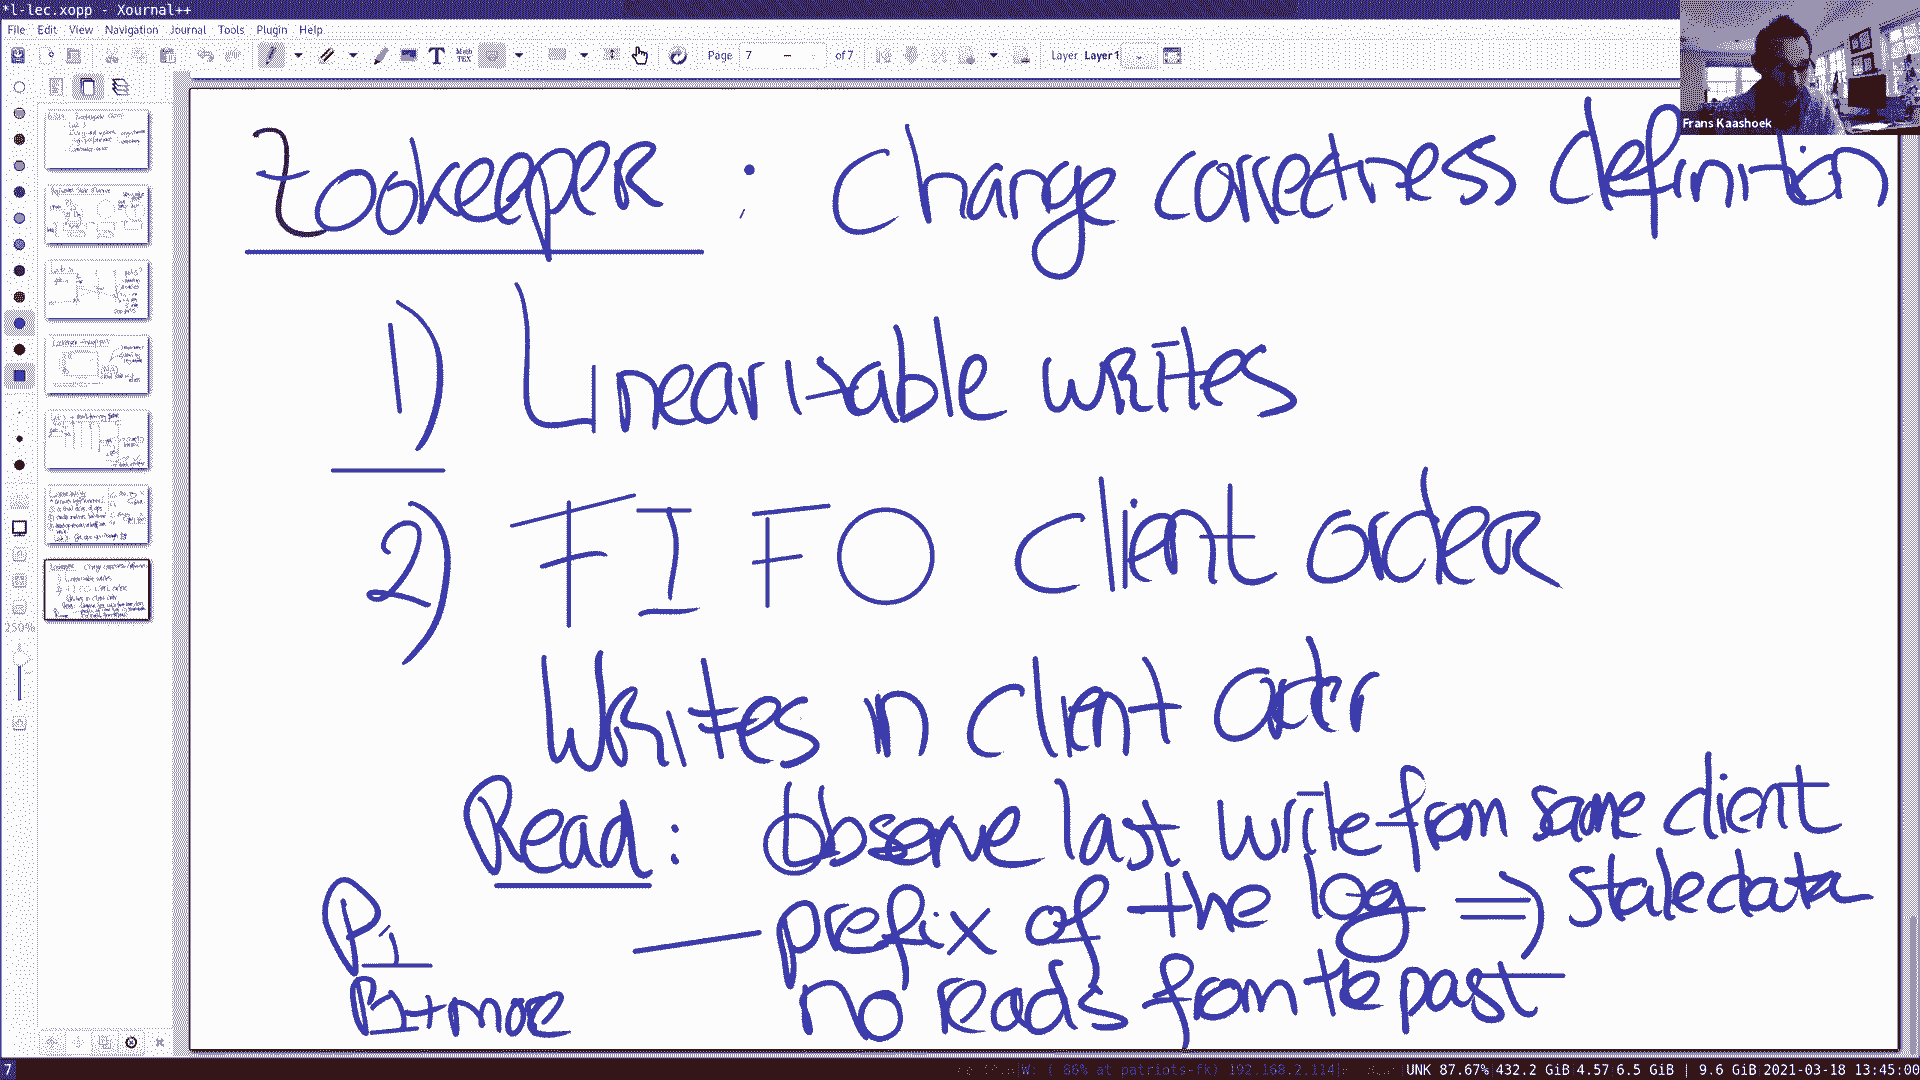 *l-lec.xopp - Xournal++
File Edit View Navigation Journal Tools Plugin Help
Page 7 of 7 Layer Layer 1
Frans Kaashoek
Zookeeper : Change correctness definition
1) Linearizable writes
2) FIFO client order
Writes in client order
Read: Observe last write from same client
P1 — prefix of the log ⇒ stale data
P1+more no reads from the past
250%
7 W: ( 86% at patriots-fk) 192.168.2.114 UNK 87.67% 432.2 GiB 4.57 6.5 GiB | 9.6 GiB 2021-03-18 13:45:00